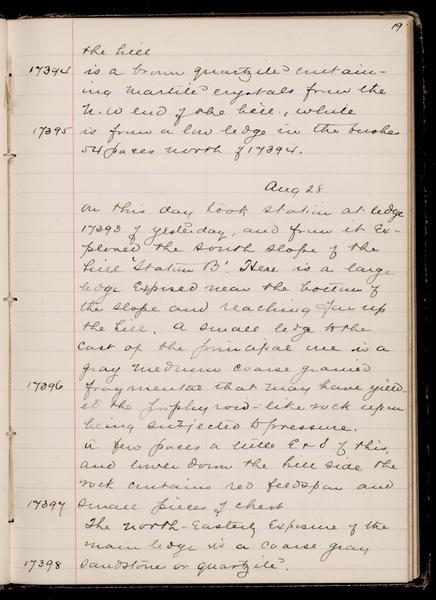 19
the hill
17394 is a brown quartzite contain-
ing martite crystals from the
N.W end of the hill, while
17395 is from a low ledge in the bushes
54 paces north of 17394.
Aug 28
On this day took station at ledge
17393 of yesterday, and from it Ex-
plored the south slope of the
hill "Station B". Here is a large
ledge Exposed near the bottom of
the slope and reaching far up
the hill. A small ledge to the
East of the principal one is a
gray medium coarse grained
17396 fragmental that may have yield-
ed the porphyroid-like rock upon
being subjected to pressure.
A few paces a little E & S of this,
and lower down the hill side the
rock contains red feldspar and
17397 small pieces of chert
The north-Easterly Exposure of the
main ledge is a coarse gray
17398 sandstone or quartzite.